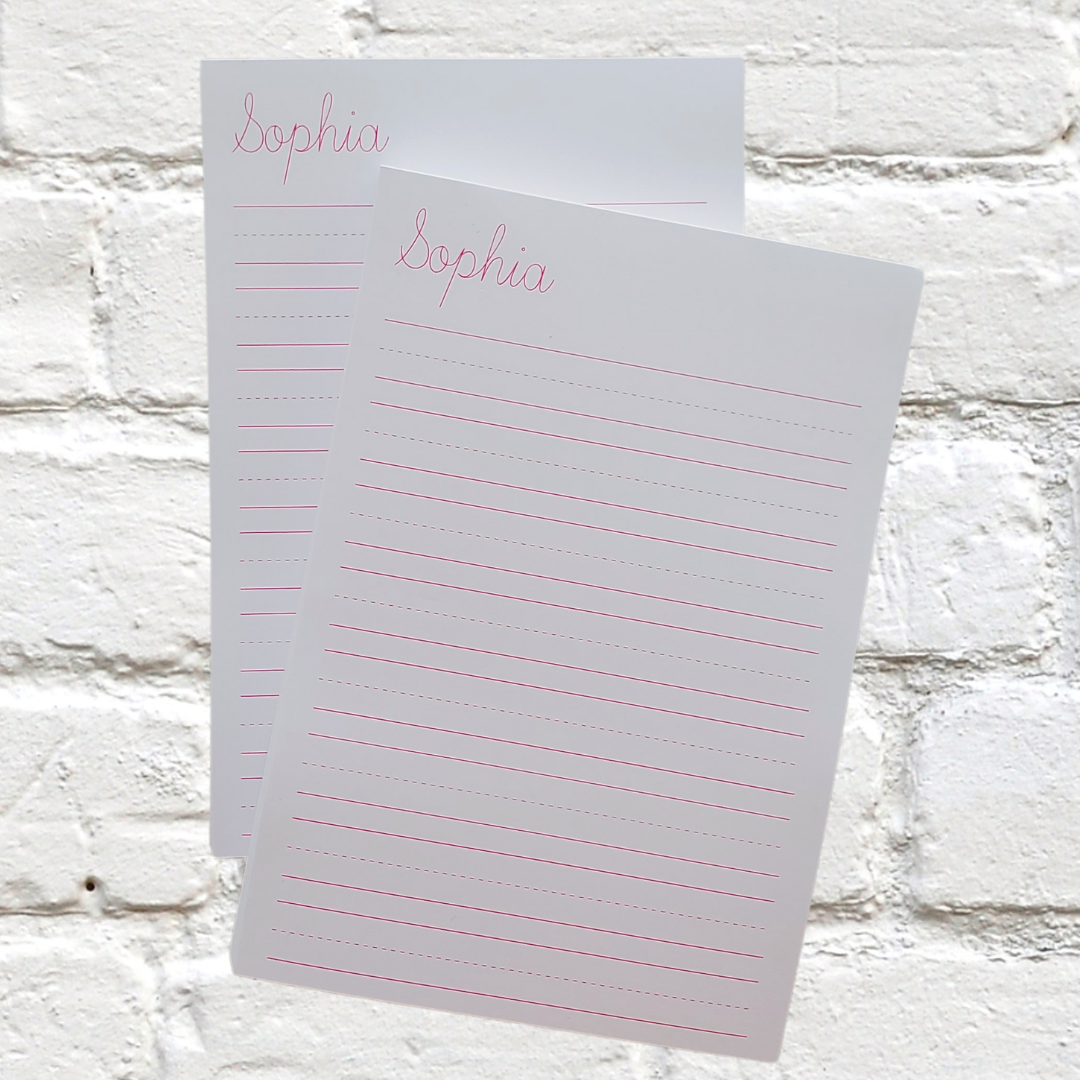 Sophia
Sophia